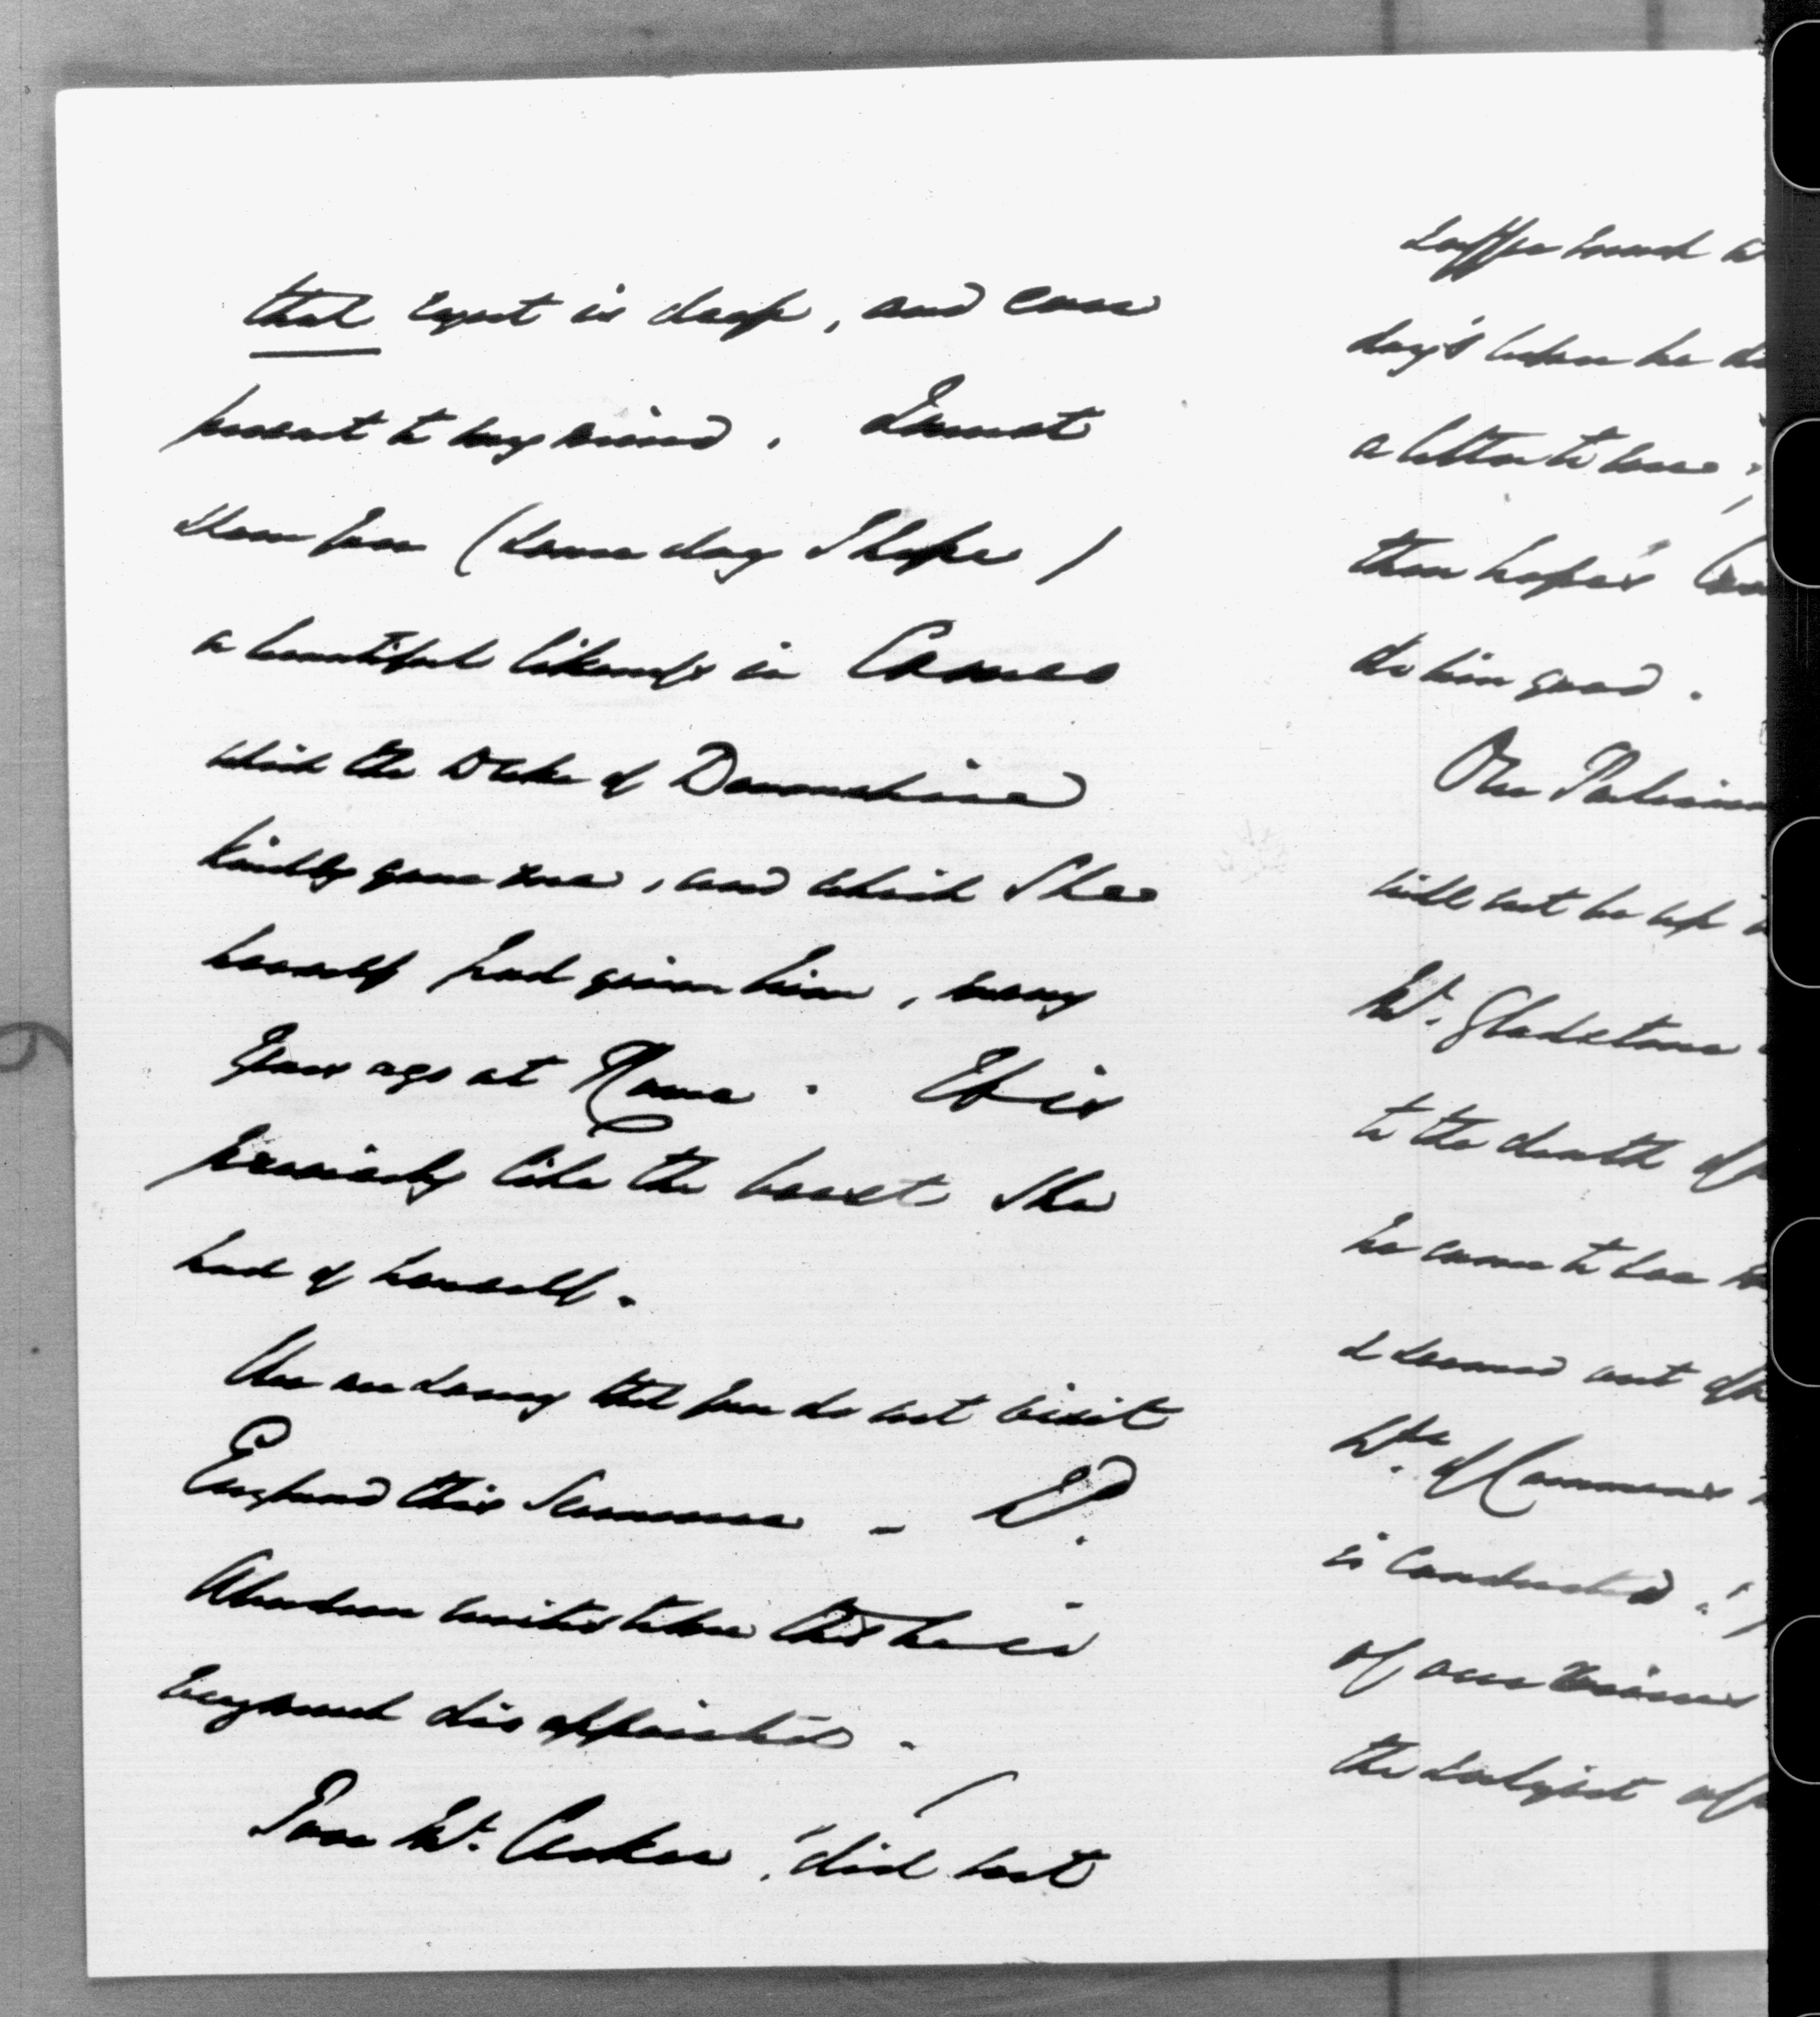 that regret is deep, and ever
present to my mind. I must
show you (some day I hope)
a beautiful likeness in Cameo
which the Duke of Devonshire
kindly gave me, and which She
herself had given him, many
years ago at Rome. It is
precisely like the bust She
had of herself.
We are sorry that you do not visit
England this Summer - Ld.
Aberdeen writes to me that he is
very much disappointed.
Poor Mr. Croker! did not
suffer much
days when he
a letter to me
then hopes
do him good.
Our Parliam
will not be up
Mr. Gladstone
to the death of
he came to see
& seemed not
He. of Commons
is conducted!
of our
the subject of